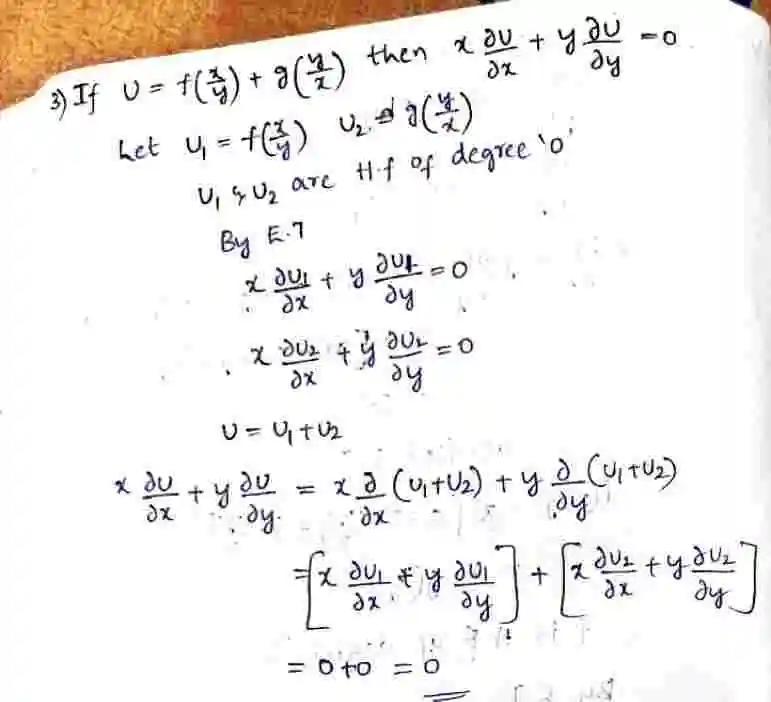 3) If U = f(x/y) + g(y/x) then x ∂U/∂x + y ∂U/∂y = 0
Let U₁ = f(x/y) U₂ = g(y/x)
U₁ & U₂ are H.f of degree '0'
By E.T
x ∂U₁/∂x + y ∂U₁/∂y = 0
x ∂U₂/∂x + y ∂U₂/∂y = 0
U = U₁ + U₂
x ∂U/∂x + y ∂U/∂y = x ∂/∂x (U₁+U₂) + y ∂/∂y (U₁+U₂)
= [x ∂U₁/∂x + y ∂U₁/∂y] + [x ∂U₂/∂x + y ∂U₂/∂y]
= 0+0 = 0